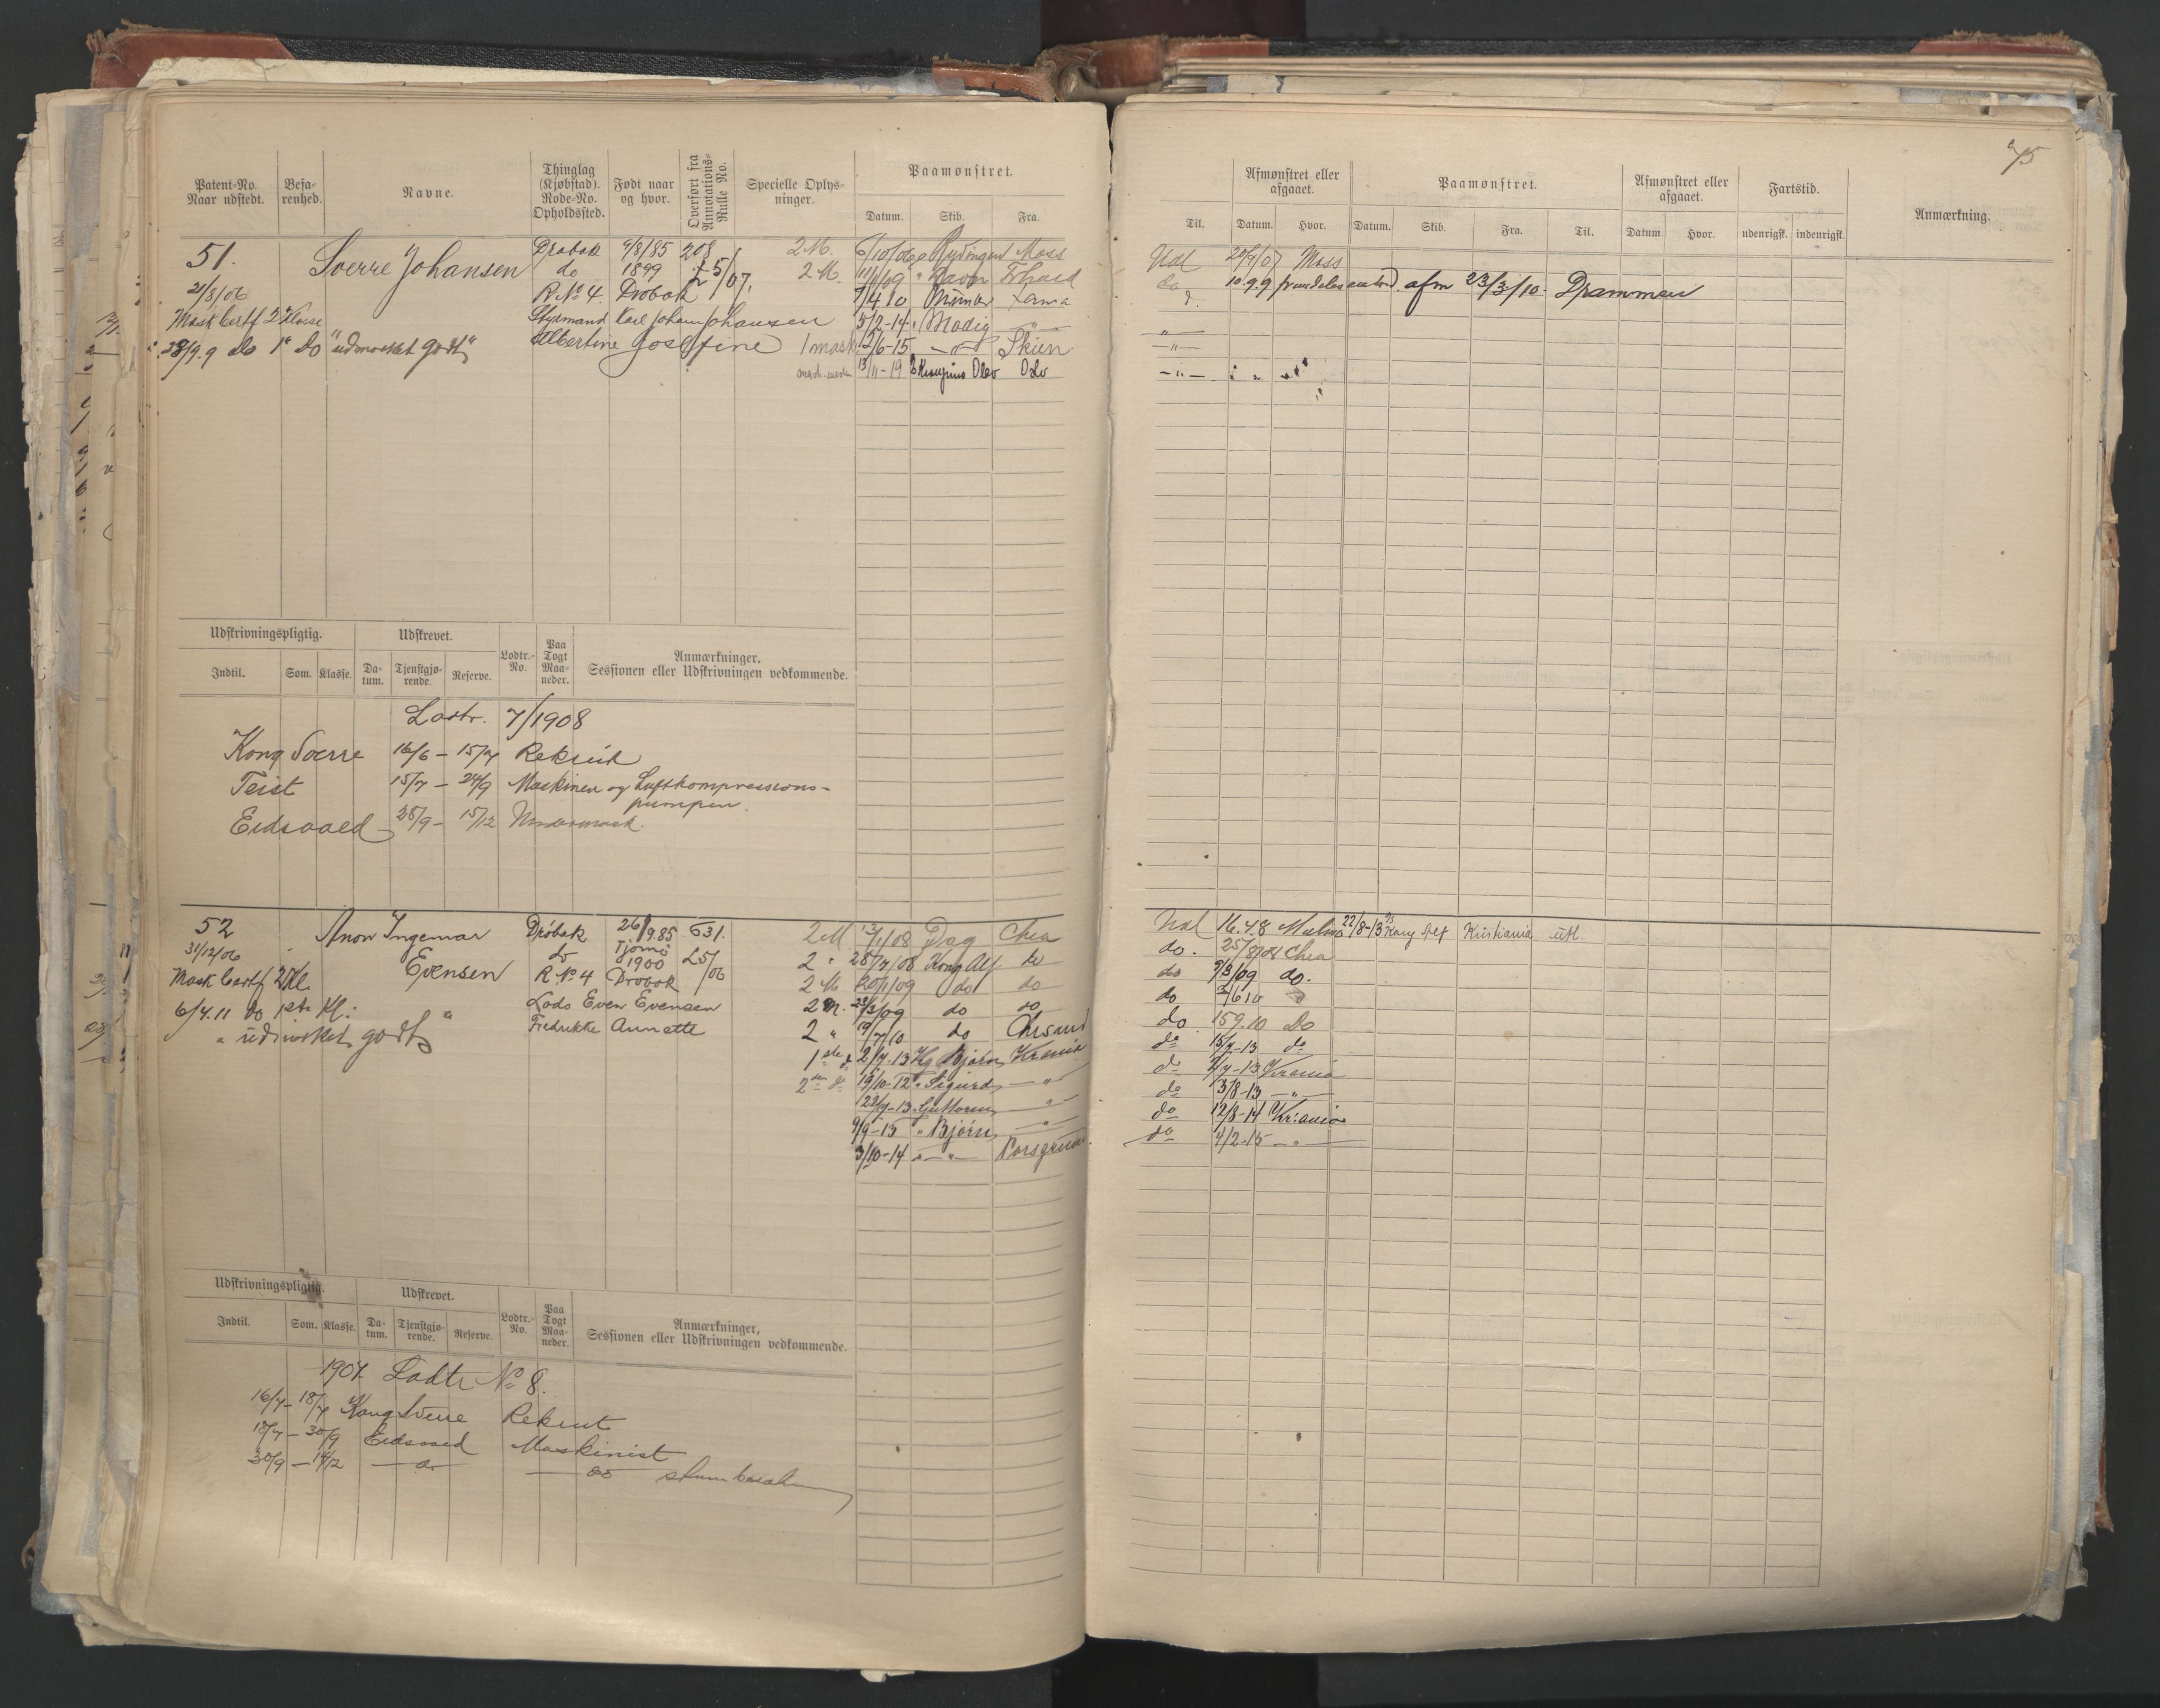 75
Patent-No. Naar udstedt.
Befa-renhed.
Navne.
Thinglag (Kjøbstad). Rode-No. Opholdssted.
Født naar og hvor.
Overført fra Annotations-Rulle No.
Specielle Oplys-ninger.
Paamønstret.
Datum. Skib. Fra.
Til.
Afmønstret eller afgaaet.
Datum. Hvor.
Paamønstret.
Datum. Skib. Fra. Til.
Afmønstret eller afgaaet.
Datum. Hvor.
Fartstid.
udenrigsk. indenrigsk.
Anmærkning.
51. Sverre Johansen Drøbak 4/8/85 208 2M. 6/10/06 Moss Udl 20/9/07 Moss
21/8/06 do 1899 L5/07. 2M. do 10.9.9 afm 23/3/10. Drammen
R No 4 Drøbak 7/4 10
Mask Certf 2 Klasse Styrmand Karl Johan Johansen 5/2-14 Modig —"—
28/9.9 do 1e do "udmærket godt" Albertine Josefine 1 mask 12/6-15 —"— Skien
13/11-19 Oslo
Udskrivningspligtig. Udskrevet. Lodtr.-No. Paa Togt Maa-neder. Anmærkninger, Sessionen eller Udskrivningen vedkommende.
Indtil. Som. Klasse. Da-tum. Tjenstgjø-rende. Reserve.
Lodtr. 7/1908
Kong Sverre 16/6 – 15/7 Rekrut
Teist 15/7 – 24/9 Maskinen og Luftkompressions-
pumpen.
Eidsvold 25/9 – 15/12 Undermask.
52 Anon Ingemar Drøbak 26/9.85 631. 2M. Dag Chra Udl 16.4.8 Malmø 22/8-13 Kong Alf Kristiania utl.
31/12/06 Evensen do Tjømø 1900 L5/06 2 " 28/7/08 Kong Alf do do. 25/8/08 Chra
Mask Certf 2 Kl. R. No 4 Drøbak 2M 20/1/09 do do do 9/3/09 do.
6/4.11 do 1ste Kl: Lods Even Evensen 2M. 23/3/09 do do do
"udmerket godt" Fredrikke Annette 2 " 19/7/10 do Chrsand do 15 9.10 Do
1ste do 2/7-13 Kg Bjørn Krania do 15/7-13 do
2den do 19/10-12 " Sigurd —"— do 2/7-13 Krania
22/7-13 " Guttorm —"— do 3/8-13 —"—
9/9-15 " Bjørn —"— do 12/8-14 Kr:ania
3/10-14 —"— Porsgrund do 4/2-15 —"—
Udskrivningspligtig. Udskrevet. Lodtr.-No. Paa Togt Maa-neder. Anmærkninger, Sessionen eller Udskrivningen vedkommende.
Indtil. Som. Klasse. Da-tum. Tjenstgjø-rende. Reserve.
1907. Lodtr No 8.
16/7 – 18/7 Kong Sverre Rekrut
18/7 – 30/9 Eidsvold Maskinist
30/9 – 14/12 —"— —do—